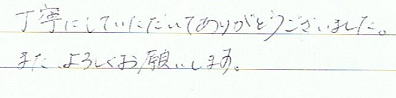 丁寧にしていただいてありがとうございました。
また、よろしくお願いします。